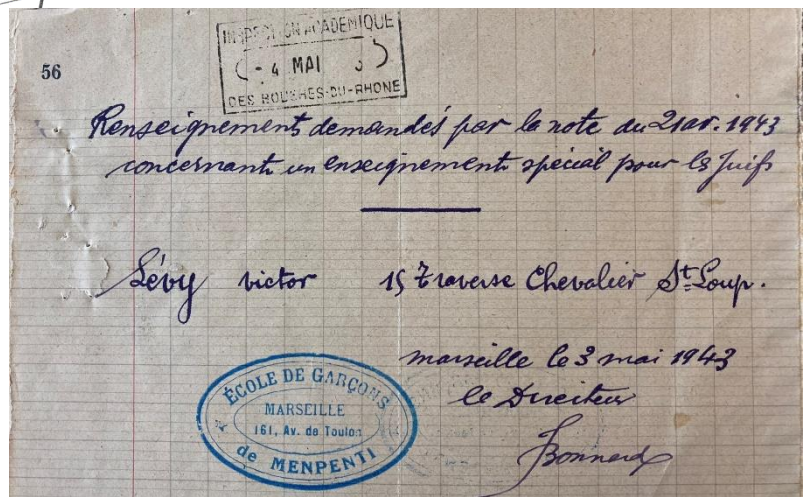 INSPECTION ACADEMIQUE
- 4 MAI 3
DES BOUCHES-DU-RHONE
56
Renseignements demandés par la note du 21 av. 1943
concernant un enseignement spécial pour les Juifs
Lévy victor 15 Traverse Chevalier St Loup.
marseille le 3 mai 1943
le Directeur
Bonnard
ÉCOLE DE GARÇONS
MARSEILLE
161, Av. de Toulon
de MENPENTI